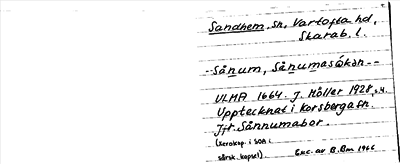 Sandhem, sn, Vartofta hd,
Skarab. l.
-- Sånum, Sånumasåkən --
ULMA 1664. J. Möller 1928, s.4.
Upptecknat i Korsberga sn.
Jfr. Sånnumabor.
(Xerokop. i SOA i
särsk. kapsel). Exc. av B. Bm 1966